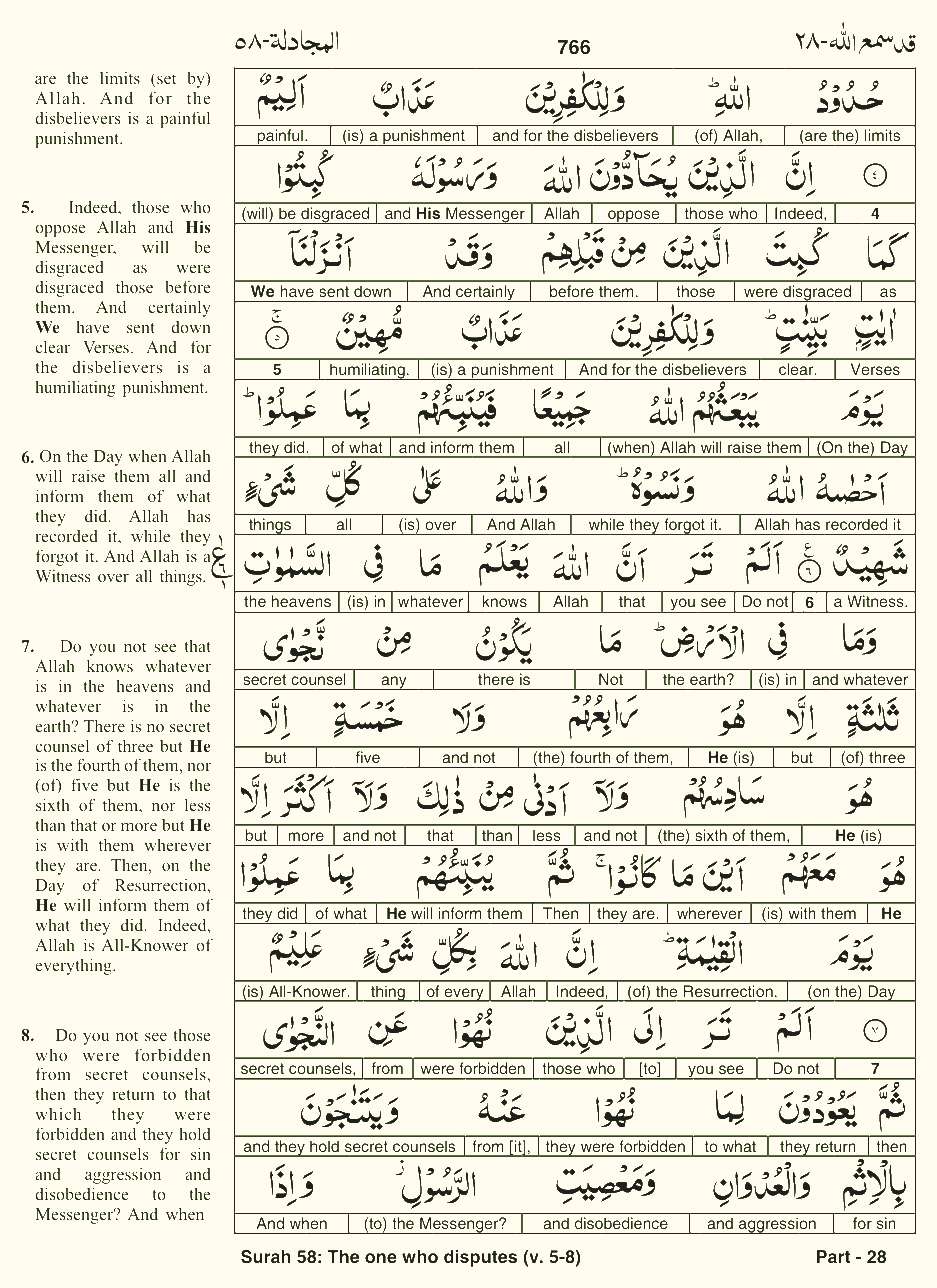 المجادلة-٥٨
766
قد سمع الله-٢٨
are the limits (set by)
Allah. And for the
disbelievers is a painful
punishment.
5. Indeed, those who
oppose Allah and His
Messenger, will be
disgraced as were
disgraced those before
them. And certainly
We have sent down
clear Verses. And for
the disbelievers is a
humiliating punishment.
6. On the Day when Allah
will raise them all and
inform them of what
they did. Allah has
recorded it, while they
forgot it. And Allah is a
Witness over all things.
7. Do you not see that
Allah knows whatever
is in the heavens and
whatever is in the
earth? There is no secret
counsel of three but He
is the fourth of them, nor
(of) five but He is the
sixth of them, nor less
than that or more but He
is with them wherever
they are. Then, on the
Day of Resurrection,
He will inform them of
what they did. Indeed,
Allah is All-Knower of
everything.
8. Do you not see those
who were forbidden
from secret counsels,
then they return to that
which they were
forbidden and they hold
secret counsels for sin
and aggression and
disobedience to the
Messenger? And when
حُدُوْدُ اللّٰهِ ؕ وَلِلْكٰفِرِيْنَ عَذَابٌ اَلِيْمٌ
painful. (is) a punishment and for the disbelievers (of) Allah, (are the) limits
٤ اِنَّ الَّذِيْنَ يُحَآدُّوْنَ اللّٰهَ وَرَسُوْلَهٗ كُبِتُوْا
(will) be disgraced and His Messenger Allah oppose those who Indeed, 4
كَمَا كُبِتَ الَّذِيْنَ مِنْ قَبْلِهِمْ وَقَدْ اَنْزَلْنَاۤ
We have sent down And certainly before them. those were disgraced as
اٰيٰتٍۭ بَيِّنٰتٍ ؕ وَلِلْكٰفِرِيْنَ عَذَابٌ مُّهِيْنٌ ۚ ٥
5 humiliating. (is) a punishment And for the disbelievers clear. Verses
يَوْمَ يَبْعَثُهُمُ اللّٰهُ جَمِيْعًا فَيُنَبِّئُهُمْ بِمَا عَمِلُوْا ؕ
they did. of what and inform them all (when) Allah will raise them (On the) Day
اَحْصٰىهُ اللّٰهُ وَنَسُوْهُ ؕ وَاللّٰهُ عَلٰى كُلِّ شَيْءٍ
things all (is) over And Allah while they forgot it. Allah has recorded it
شَهِيْدٌ ٦ اَلَمْ تَرَ اَنَّ اللّٰهَ يَعْلَمُ مَا فِى السَّمٰوٰتِ
the heavens (is) in whatever knows Allah that you see Do not 6 a Witness.
وَمَا فِى الْاَرْضِ ؕ مَا يَكُوْنُ مِنْ نَّجْوٰى
secret counsel any there is Not the earth? (is) in and whatever
ثَلٰثَةٍ اِلَّا هُوَ رَابِعُهُمْ وَلَا خَمْسَةٍ اِلَّا
but five and not (the) fourth of them, He (is) but (of) three
هُوَ سَادِسُهُمْ وَلَاۤ اَدْنٰى مِنْ ذٰلِكَ وَلَاۤ اَكْثَرَ اِلَّا
but more and not that than less and not (the) sixth of them, He (is)
هُوَ مَعَهُمْ اَيْنَ مَا كَانُوْا ۚ ثُمَّ يُنَبِّئُهُمْ بِمَا عَمِلُوْا
they did of what He will inform them Then they are. wherever (is) with them He
يَوْمَ الْقِيٰمَةِ ؕ اِنَّ اللّٰهَ بِكُلِّ شَيْءٍ عَلِيْمٌ
(is) All-Knower. thing of every Allah Indeed, (of) the Resurrection. (on the) Day
٧ اَلَمْ تَرَ اِلَى الَّذِيْنَ نُهُوْا عَنِ النَّجْوٰى
secret counsels, from were forbidden those who [to] you see Do not 7
ثُمَّ يَعُوْدُوْنَ لِمَا نُهُوْا عَنْهُ وَيَتَنٰجَوْنَ
and they hold secret counsels from [it], they were forbidden to what they return then
بِالْاِثْمِ وَالْعُدْوَانِ وَمَعْصِيَتِ الرَّسُوْلِ ۫ وَاِذَا
And when (to) the Messenger? and disobedience and aggression for sin
Surah 58: The one who disputes (v. 5-8)
Part - 28